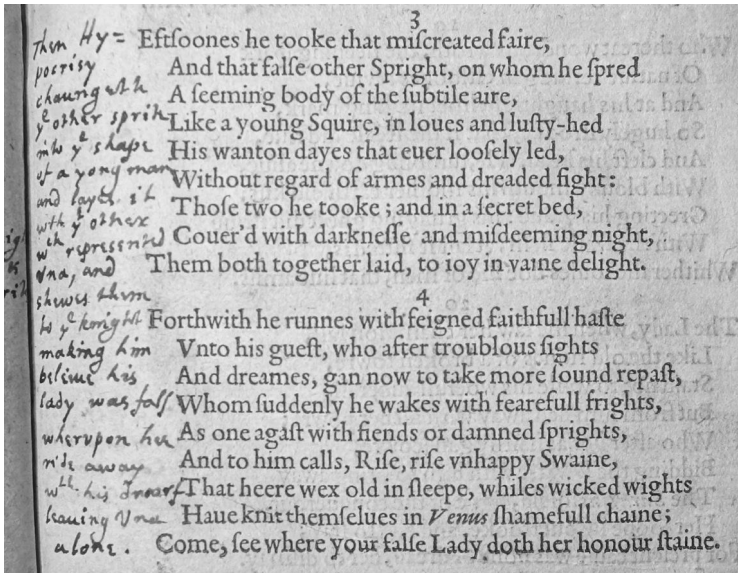 3
Eftſoones he tooke that miſcreated faire,
And that falſe other Spright, on whom he ſpred
A ſeeming body of the ſubtile aire,
Like a young Squire, in loues and luſty-hed
His wanton dayes that euer looſely led,
Without regard of armes and dreaded fight:
Thoſe two he tooke; and in a ſecret bed,
Couer'd with darkneſſe and miſdeeming night,
Them both together laid, to ioy in vaine delight.
4
Forthwith he runnes with feigned faithfull haſte
Vnto his gueſt, who after troublous ſights
And dreames, gan now to take more ſound repaſt,
Whom ſuddenly he wakes with fearefull frights,
As one agaſt with fiends or damned ſprights,
And to him calls, Riſe, riſe vnhappy Swaine,
That heere wex old in ſleepe, whiles wicked wights
Haue knit themſelues in Venus ſhamefull chaine;
Come, ſee where your falſe Lady doth her honour ſtaine.
then Hy=
pocrisy
chaungeth
yᵉ other sprite
into yᵉ shape
of a yong man
and layes it
wth yᵉ other
wch represented
Vna, and
shewes them
to yᵉ knight
making him
beliue his
lady was fals
wherupon hee
ride away
wth his Dwarf
leauing Vna
alone.